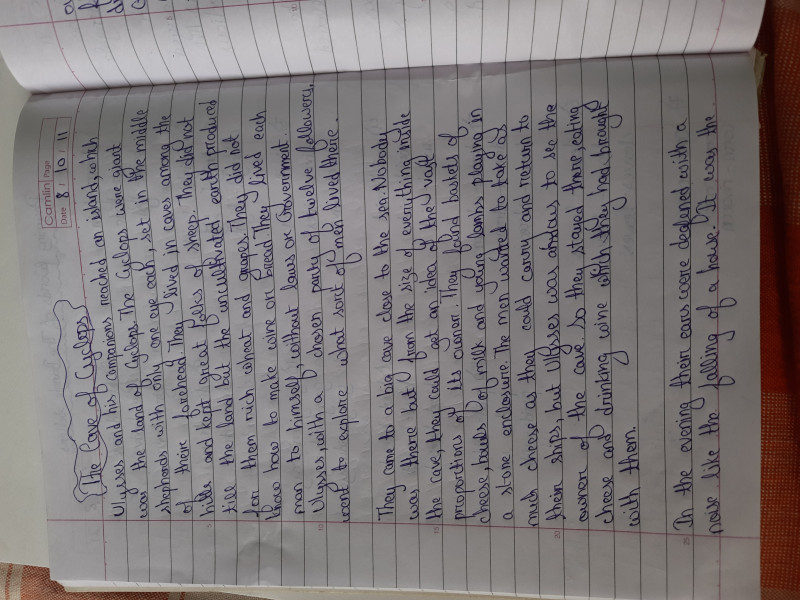 Camlin Page
Date 8 / 10 / 11
The Cave of Cyclops
Ulysses and his companions reached an island, which
was the land of Cyclops. The Cyclops were giant
shepherds with only one eye each, set in the middle
of their forehead. They lived in caves among the
hills and kept great folks of sheep. They did not
till the land but the uncultivated earth produced
for them rich wheat and grapes. They did not
know how to make wine or bread. They lived each
man to himself, without laws or Government.
Ulysses, with a chosen party of twelve followers,
went to explore what sort of men lived there.
They came to a big cave close to the sea. Nobody
was there but from the size of everything inside
the cave, they could get an idea of the vast
proportions of its owner. They found baskets of
cheese, bowls of milk and young lambs playing in
a stone enclosure. The men wanted to take as
much cheese as they could carry and return to
their ships, but Ulysses was anxious to see the
owner of the cave. So they stayed there, eating
cheese and drinking wine which they had brought
with them.
In the evening their ears were deafened with a
noise like the falling of a house. It was the